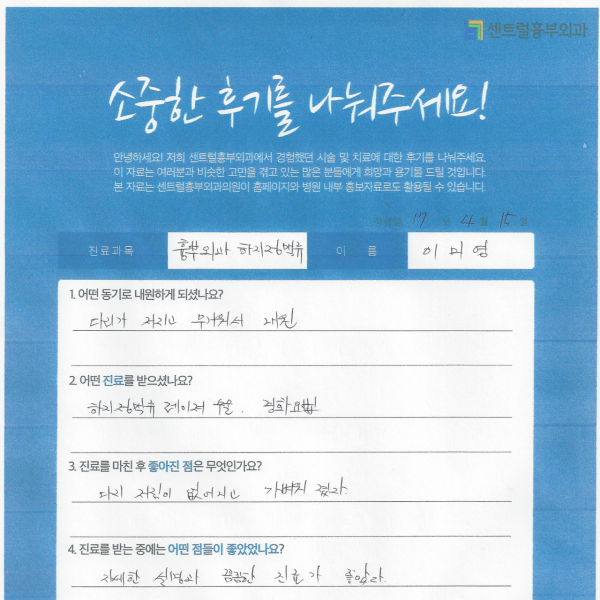 센트럴흉부외과
소중한 후기를 나눠주세요!
안녕하세요! 저희 센트럴흉부외과에서 경험했던 시술 및 치료에 대한 후기를 나눠주세요.
이 자료는 여러분과 비슷한 고민을 겪고 있는 많은 분들에게 희망과 용기를 드릴 것입니다.
본 자료는 센트럴흉부외과의원이 홈페이지와 병원 내부 홍보자료로도 활용될 수 있습니다.
17 년 4 월 15 일
진료과목 흉부외과 하지정맥류 이 름 이미영
1. 어떤 동기로 내원하게 되셨나요?
다리가 저리고 무거워서 내원
2. 어떤 진료를 받으셨나요?
하지정맥류 레이져 수술. 경화요법
3. 진료를 마친 후 좋아진 점은 무엇인가요?
다리 저림이 없어지고 가벼워 졌다.
4. 진료를 받는 중에는 어떤 점들이 좋았었나요?
자세한 설명과 꼼꼼한 진료가 좋았다.